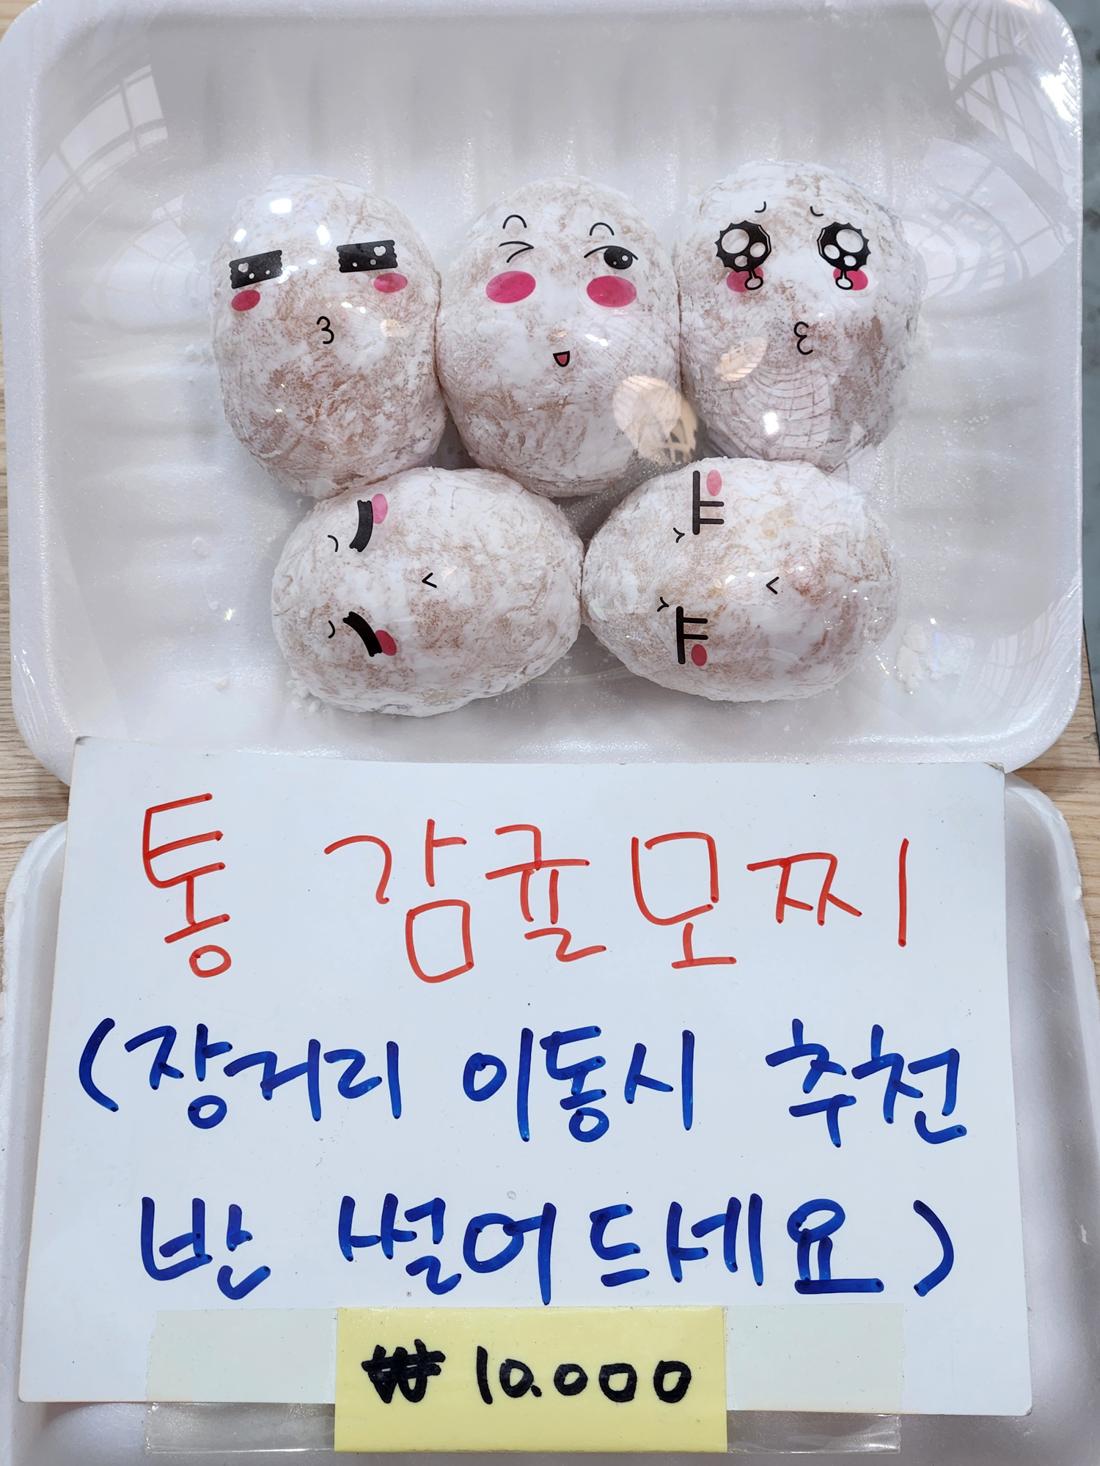 통 감귤모찌
(장거리 이동시 추천
반 썰어드세요)
₩ 10.000